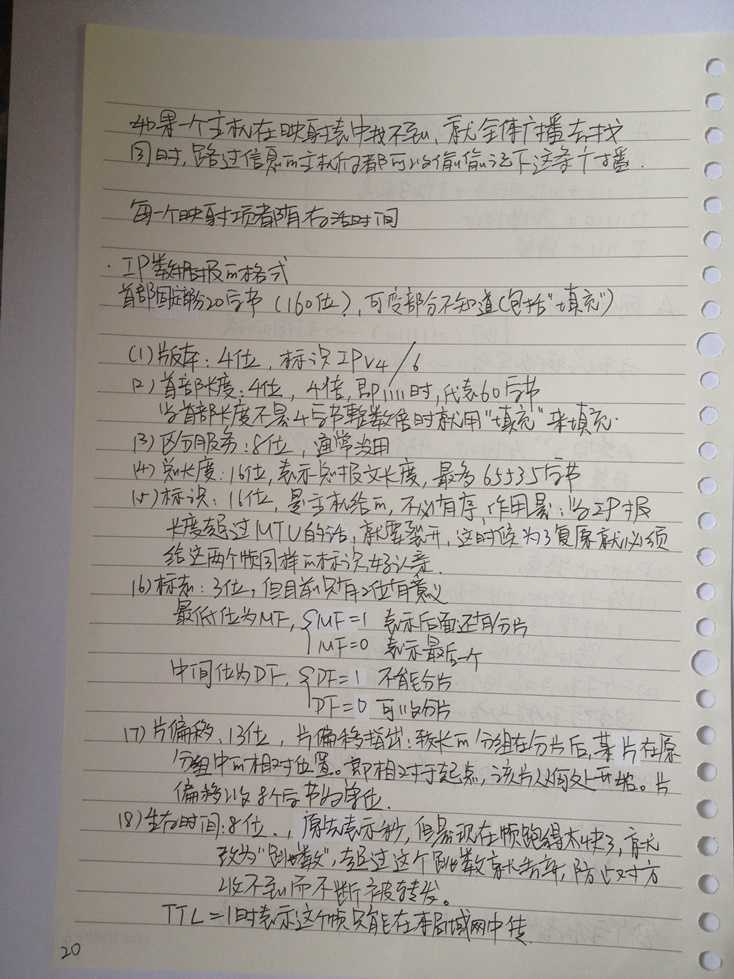 如果一个主机在映射表中找不到,就全体广播去找
同时,路过信息的主机们都可以偷偷记下这条广播.
每一个映射项都有存活时间
·IP数据报的格式
首部固定部分20字节(160位),可变部分不知道(包括“填充”)
(1)版本:4位,标识IPv4/6
(2)首部长度:4位,4倍,即1111时,代表60字节
当首部长度不是4字节整数倍时就用“填充”来填充.
(3)区分服务:8位,通常当用
(4)总长度:16位,表示总报文长度,最多65535字节
(5)标识:16位,是主机给的,不必有序,作用是:当IP报
长度超过MTU的话,就要裂开,这时候为了复原就必须
给这两个帧同样的标识好认亲.
(6)标志:3位,但目前只有2位有意义
最低位为MF,{MF=1 表示后面还有分片
MF=0 表示最后一个
中间位为DF,{DF=1 不能分片
DF=0 可以分片
(7)片偏移、13位,片偏移指出:较长的分组在分片后,某片在原
分组中的相对位置。即相对于起点,该片从何处开始。片
偏移以8个字节为单位.
(8)生存时间:8位.,原先表示秒,但是现在帧跑得太快了,就
改为“跳数”,超过这个跳数就丢弃,防止对方
收不到而不断被转发。
TTL=1时表示这个帧只能在本局域网中传.
20